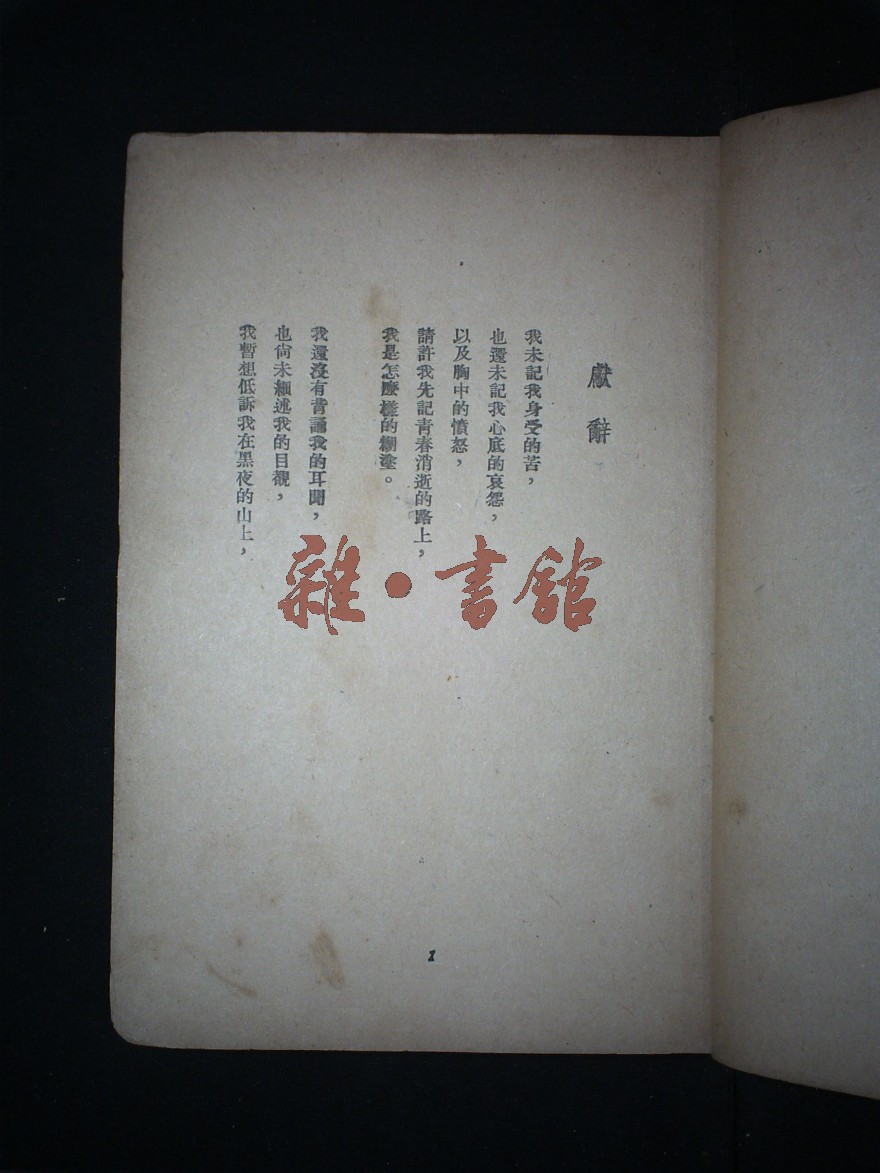 獻辭
我未記我身受的苦，
也還未記我心底的哀怨，
以及胸中的憤怒，
請許我先記青春消逝的路上，
我是怎麼樣的糊塗。
我還沒有背誦我的耳聞，
也尙未細述我的目覩，
我暫想低訴我在黑夜的山上，
雜•書館
1